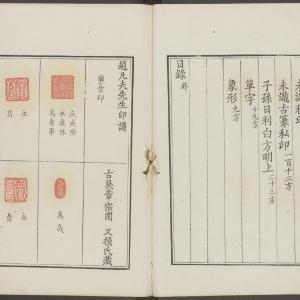 未識古篆私印一百十二方
子孫日利白方明上二十三方
單字十九方
象形九方
目錄終
趙凡夫先生印譜
璽章印
疢疾除
永康休
萬壽寧
永
昌
古吳章宗閔 又損氏藏
萬歲
永
壽